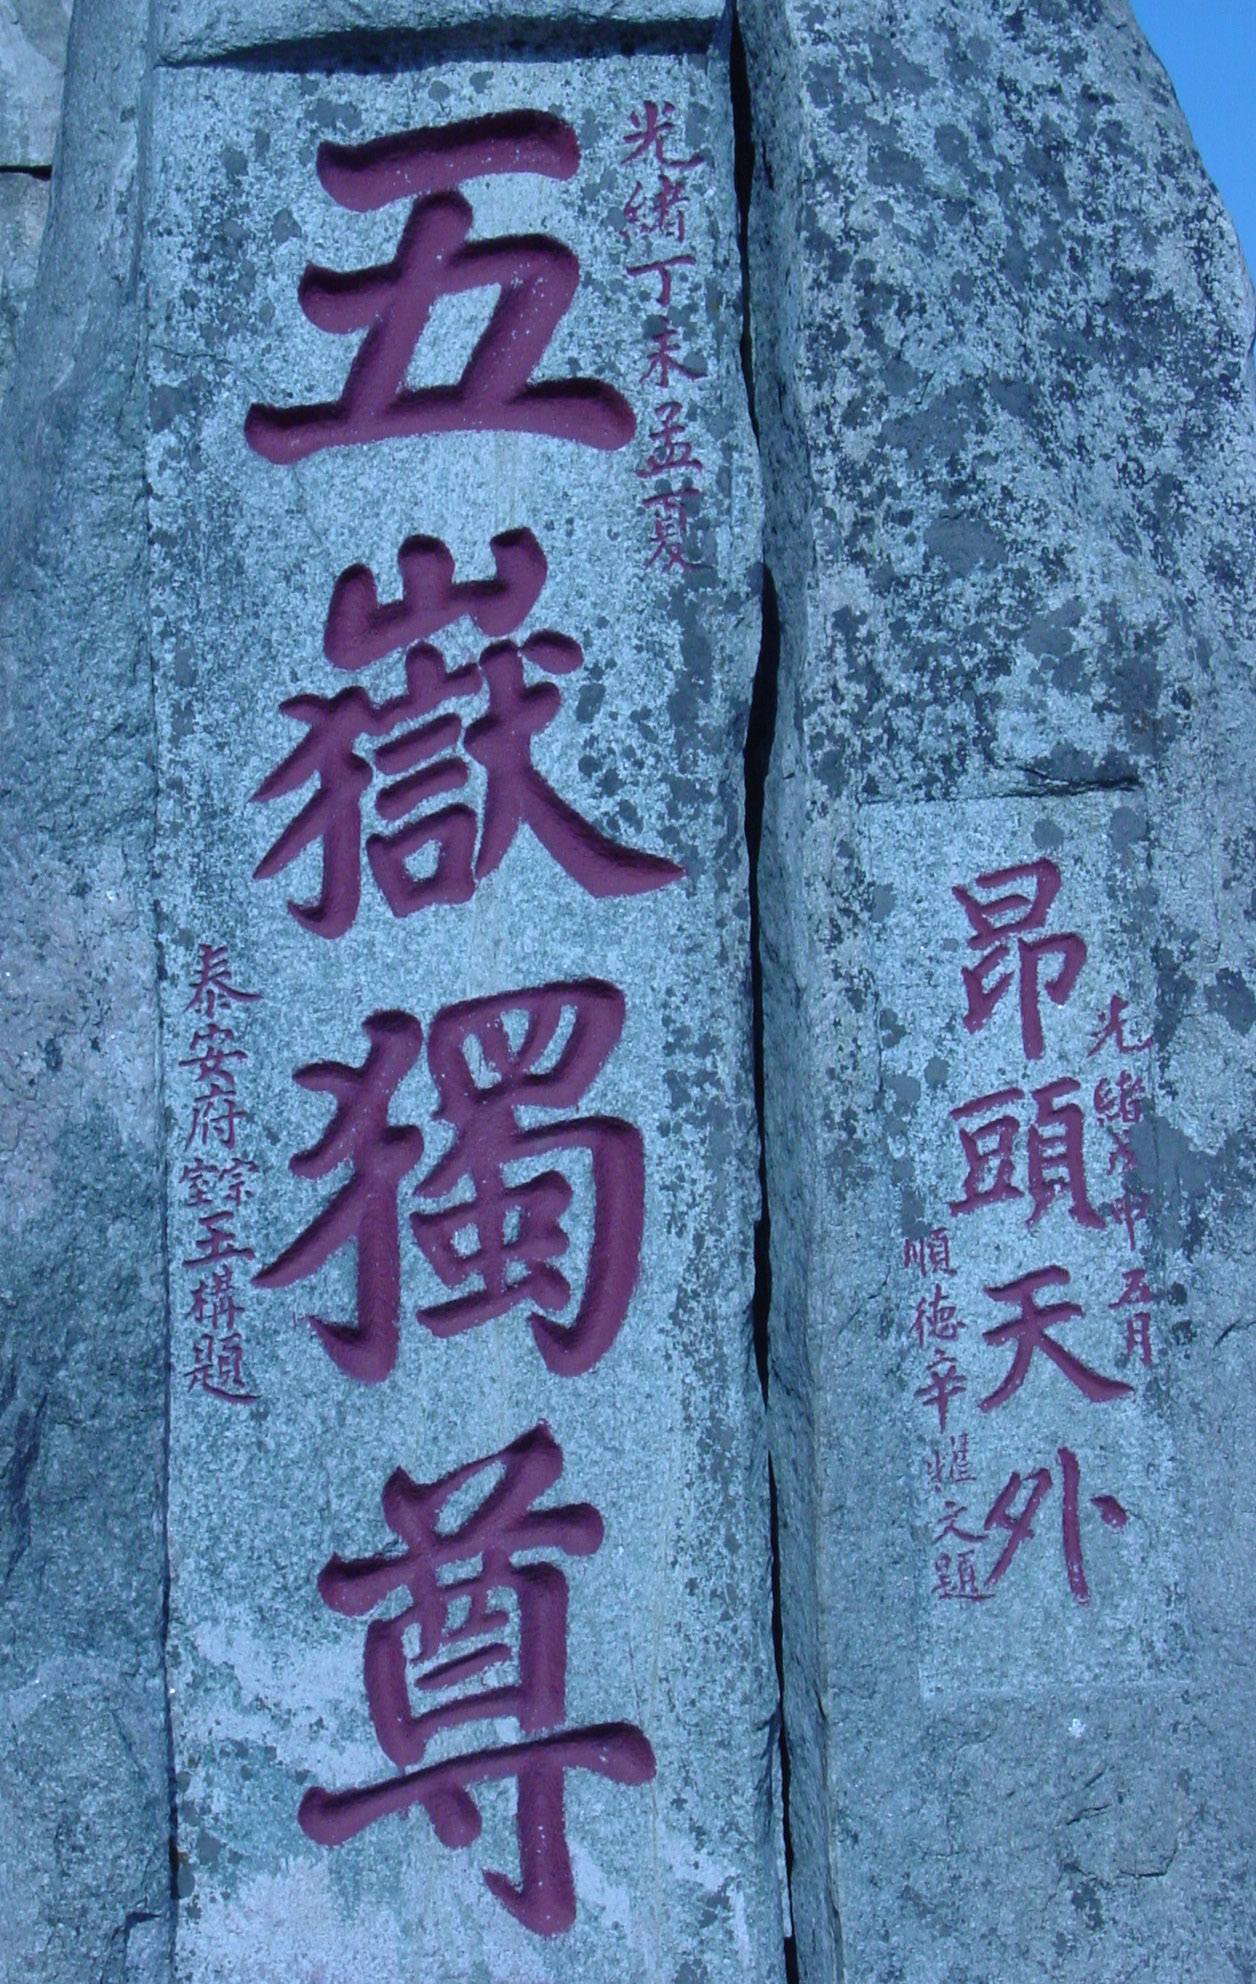 光緒戊申五月
昂頭天外
順德辛耀文題
光緒丁未孟夏
五嶽獨尊
泰安府宗室玉構題